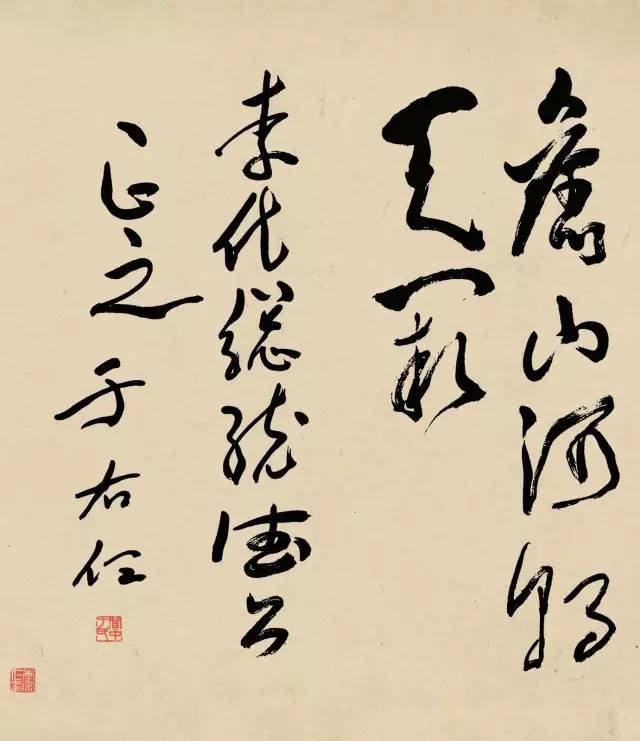 舊山河朝
天闕
李代總統德公
正之 于右任
關中于氏